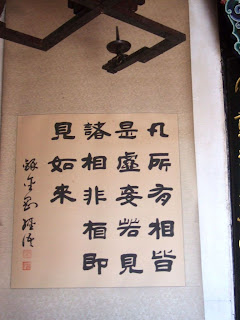 凡所有相皆
是虛妄若見
諸相非相即
見如來
錄金剛經